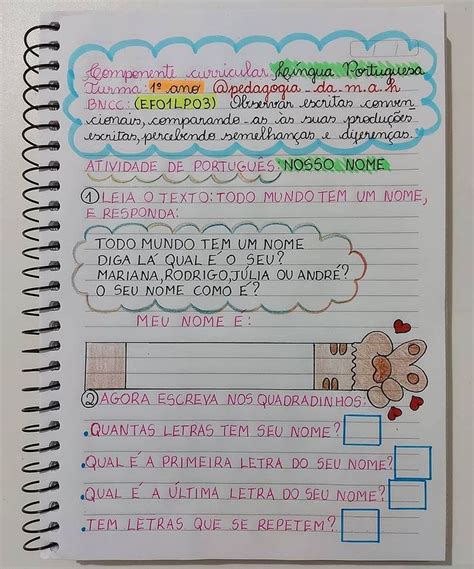 Componente curricular: Língua Portuguesa
Turma: 1º ano @pedagogia-da.m.a.h
BNCC: (EF01LP03) Observar escritas conven
cionais, comparando-as às suas produções
escritas, percebendo semelhanças e diferenças.
ATIVIDADE DE PORTUGUÊS: NOSSO NOME
① LEIA O TEXTO: TODO MUNDO TEM UM NOME,
E RESPONDA:
TODO MUNDO TEM UM NOME
DIGA LÁ QUAL É O SEU?
MARIANA, RODRIGO, JÚLIA OU ANDRÉ?
O SEU NOME COMO É?
MEU NOME É:
② AGORA ESCREVA NOS QUADRADINHOS:
.QUANTAS LETRAS TEM SEU NOME?
.QUAL É A PRIMEIRA LETRA DO SEU NOME?
.QUAL É A ÚLTIMA LETRA DO SEU NOME?
.TEM LETRAS QUE SE REPETEM?